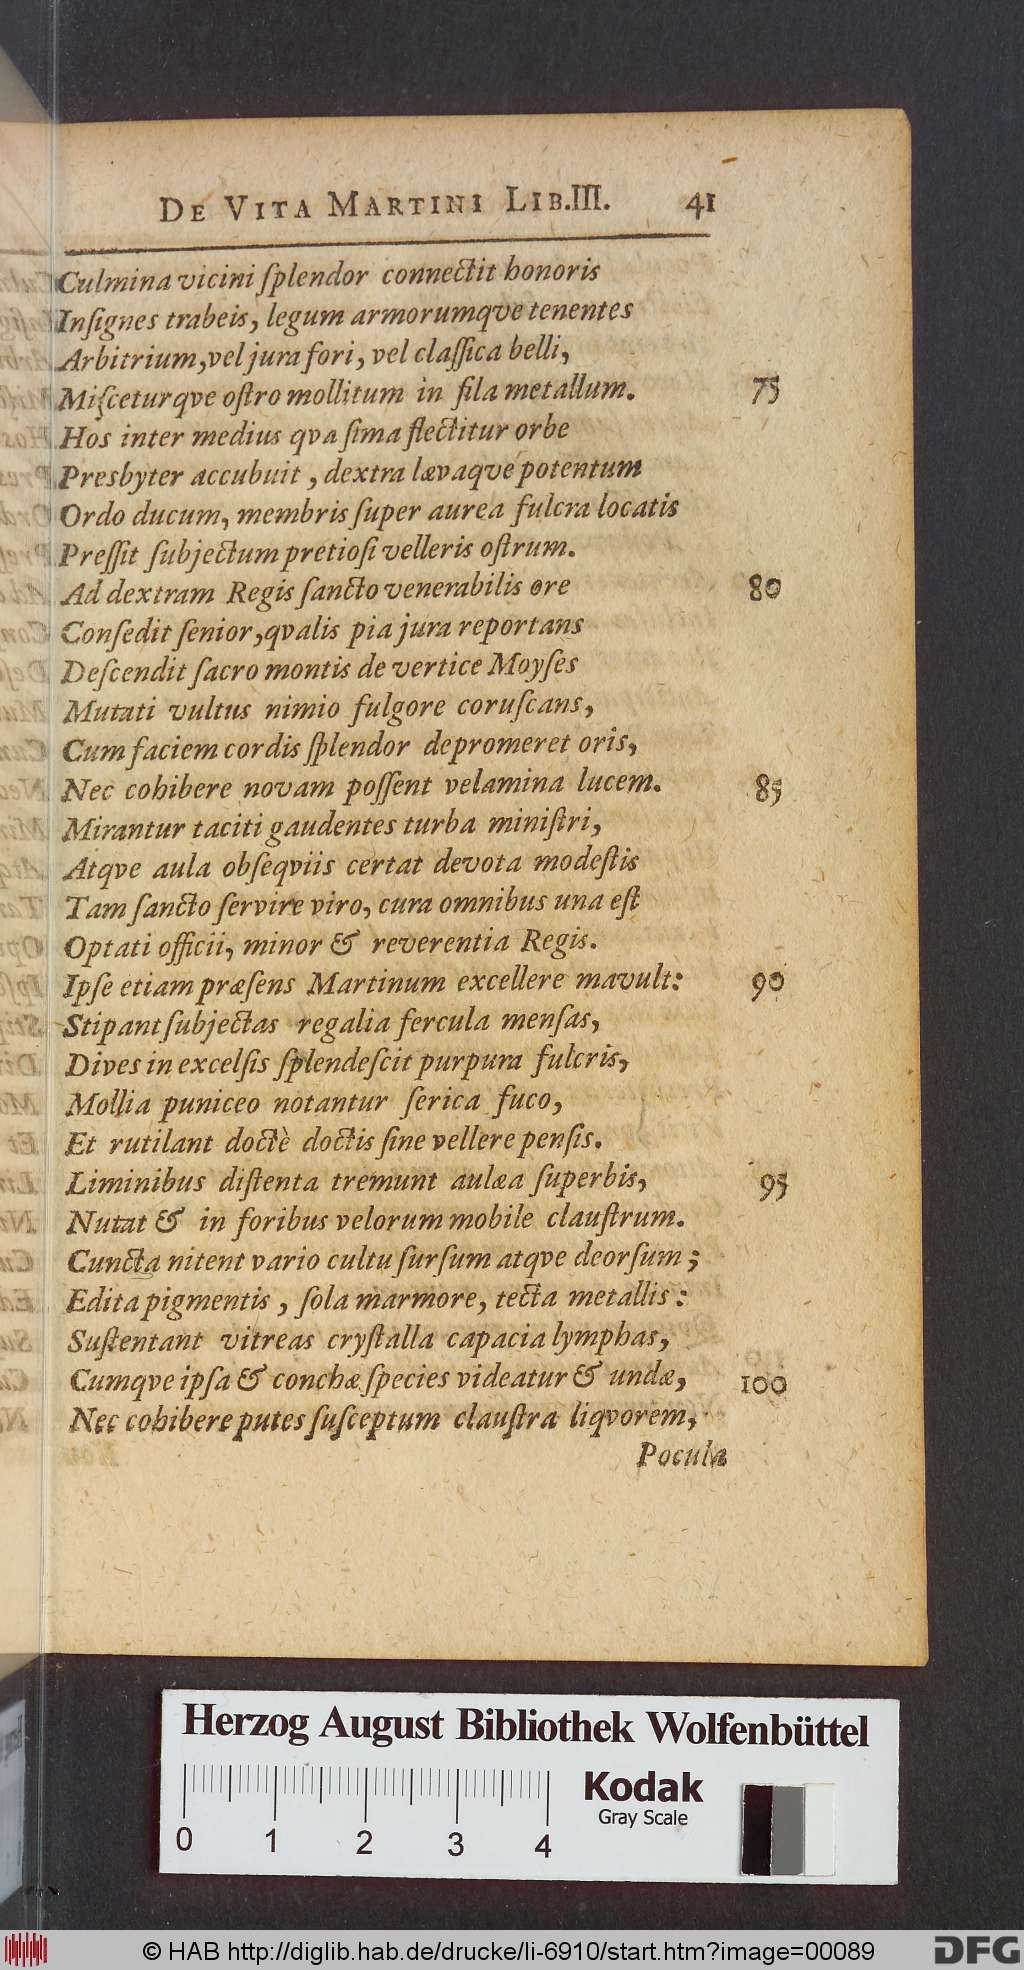 DE VITA MARTINI LIB.III. 41
Culmina vicini ſplendor connectit honoris
Inſignes trabeis, legum armorumqve tenentes
Arbitrium, vel jura fori, vel claſſica belli,
Miſceturqve oſtro mollitum in fila metallum. 75
Hos inter medius qva ſima flectitur orbe
Presbyter accubuit, dextra lævaqve potentum
Ordo ducum, membris ſuper aurea fulcra locatis
Preſſit ſubjectum pretioſi velleris oſtrum.
Ad dextram Regis ſancto venerabilis ore 80
Conſedit ſenior, qvalis pia jura reportans
Deſcendit ſacro montis de vertice Moyſes
Mutati vultus nimio fulgore coruſcans,
Cum faciem cordis ſplendor depromeret oris,
Nec cohibere novam poſſent velamina lucem. 85
Mirantur taciti gaudentes turba miniſtri,
Atqve aula obſeqviis certat devota modeſtis
Tam ſancto ſervire viro, cura omnibus una eſt
Optati officii, minor & reverentia Regis.
Ipſe etiam præſens Martinum excellere mavult: 90
Stipant ſubjectas regalia fercula menſas,
Dives in excelſis ſplendeſcit purpura fulcris,
Mollia puniceo notantur ſerica fuco,
Et rutilant doctè doctis ſine vellere penſis.
Liminibus diſtenta tremunt aulæa ſuperbis, 95
Nutat & in foribus velorum mobile clauſtrum.
Cuncta nitent vario cultu ſurſum atqve deorſum;
Edita pigmentis, ſola marmore, tecta metallis:
Suſtentant vitreas cryſtalla capacia lymphas,
Cumqve ipſa & conchæ ſpecies videatur & undæ, 100
Nec cohibere putes ſuſceptum clauſtra liqvorem,
Pocula
Herzog August Bibliothek Wolfenbüttel
Kodak
Gray Scale
0 1 2 3 4
© HAB http://diglib.hab.de/drucke/li-6910/start.htm?image=00089
DFG